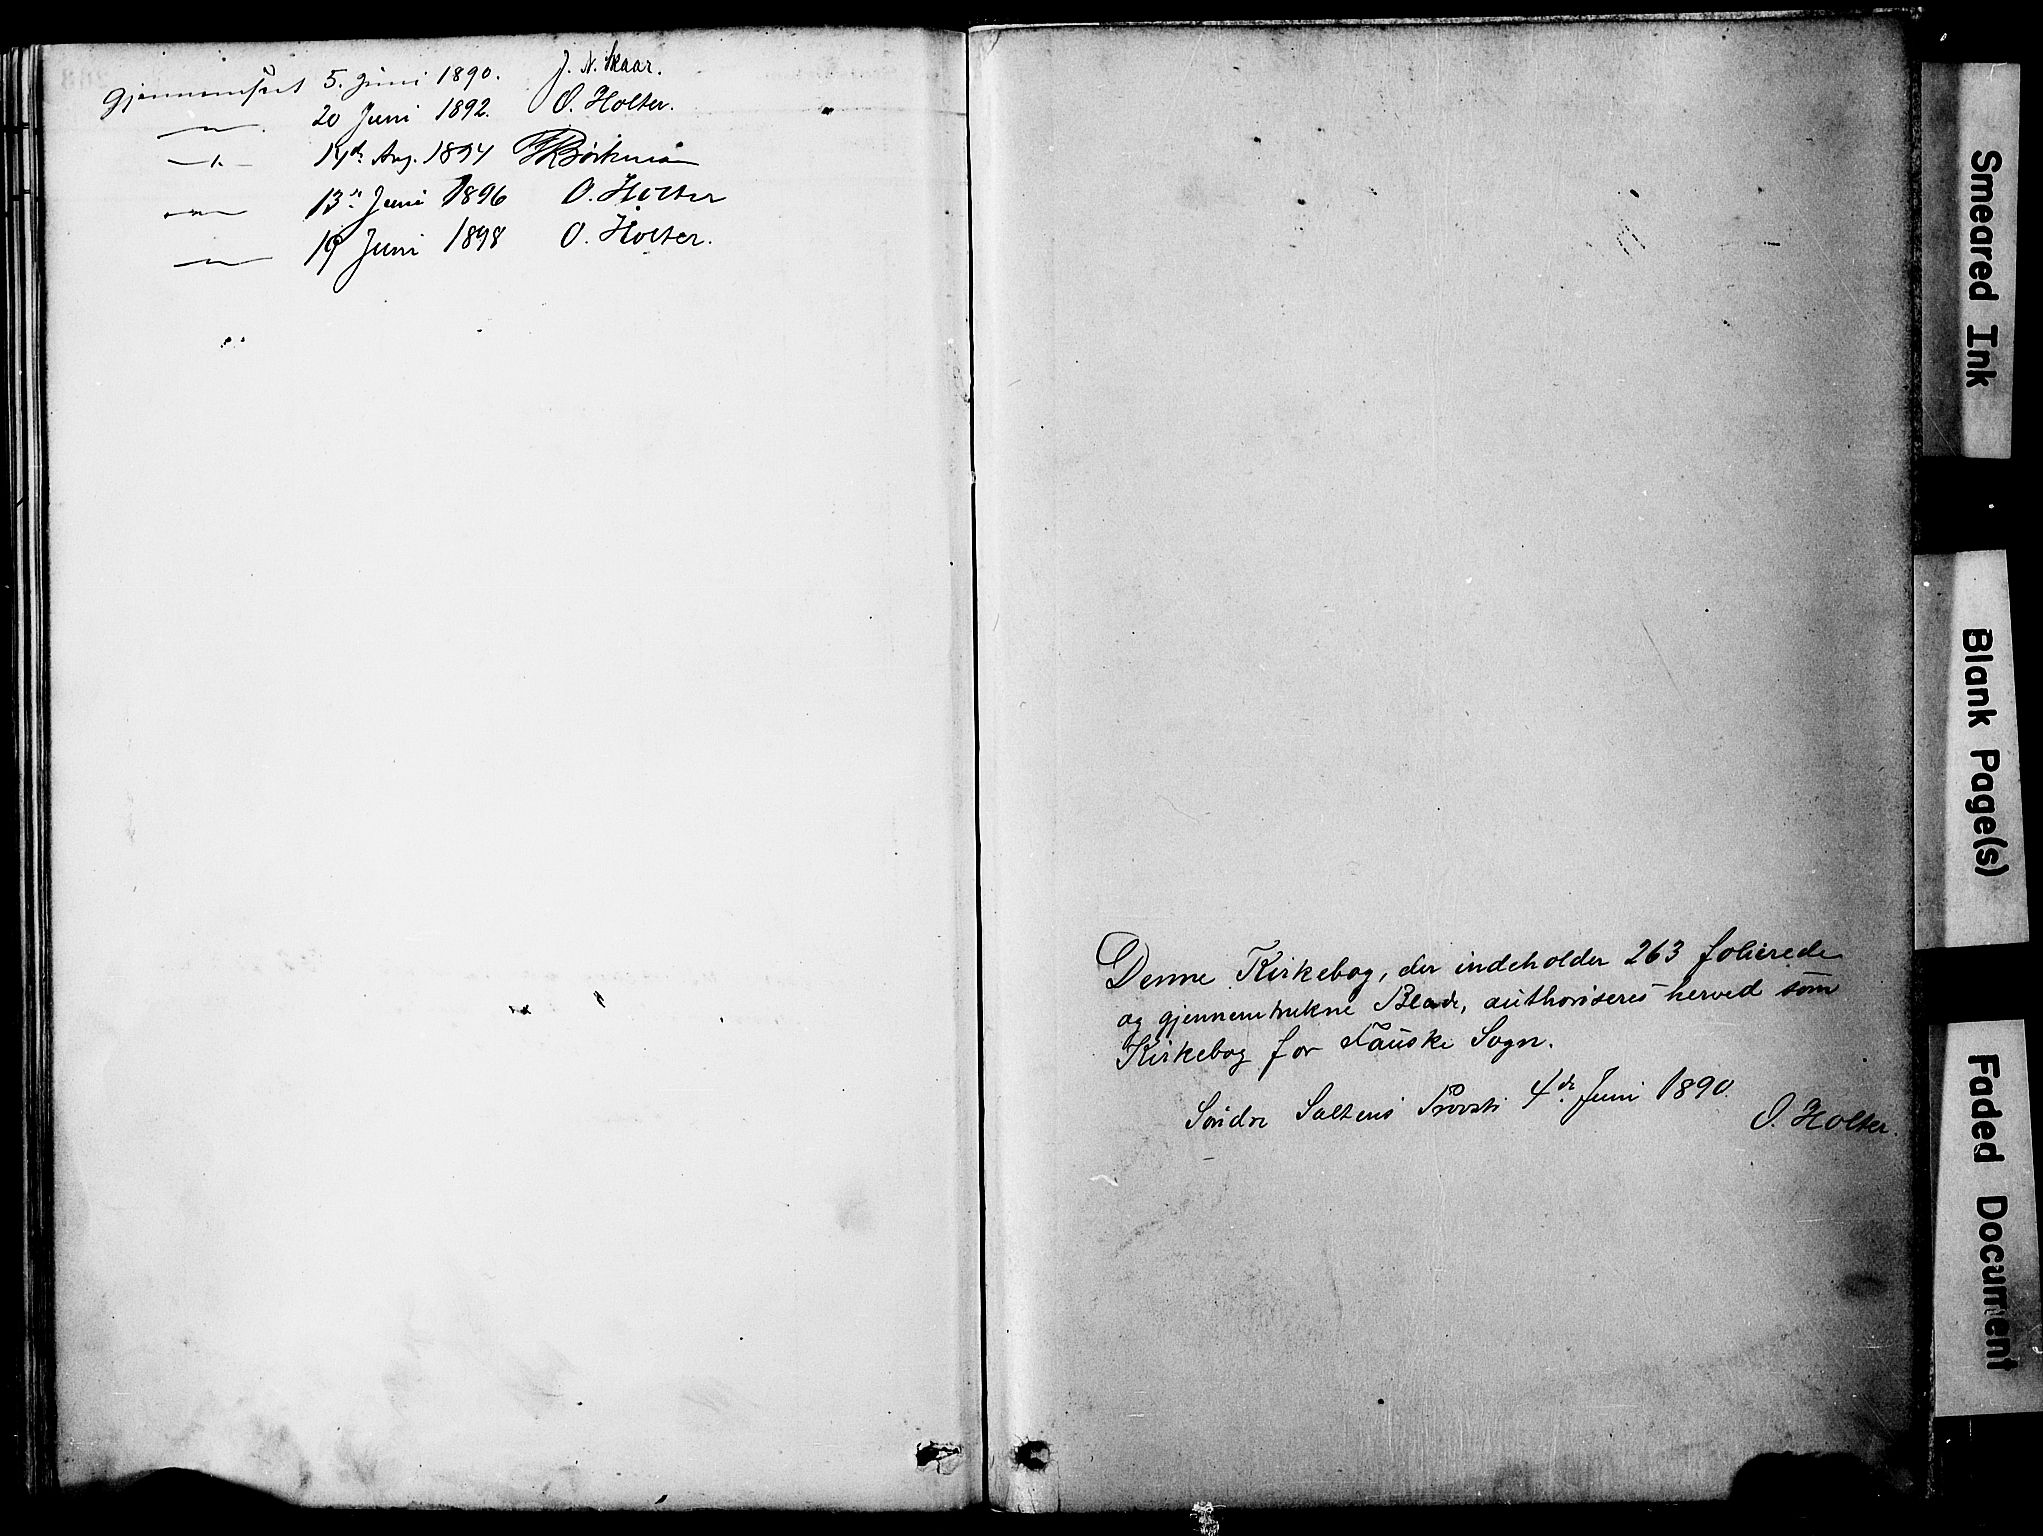 Gjennemseet 5. Juni 1890. J. N. Skaar.
— " — 20 Juni 1892. O. Holter.
— " — 14de Aug. 1894
— " — 13de Juni 1896 O. Holter
— " — 19 Juni 1898 O. Holter.
Denne Kirkebog, der indeholder 263 folierede
og gjennemtrukne Blade, authoriseres herved som
Kirkebog for Fauske Sogn.
Søndre Saltens Provsti 4de Juni 1890.
O. Holter.
Smeared Ink
Blank Page(s)
Faded Document